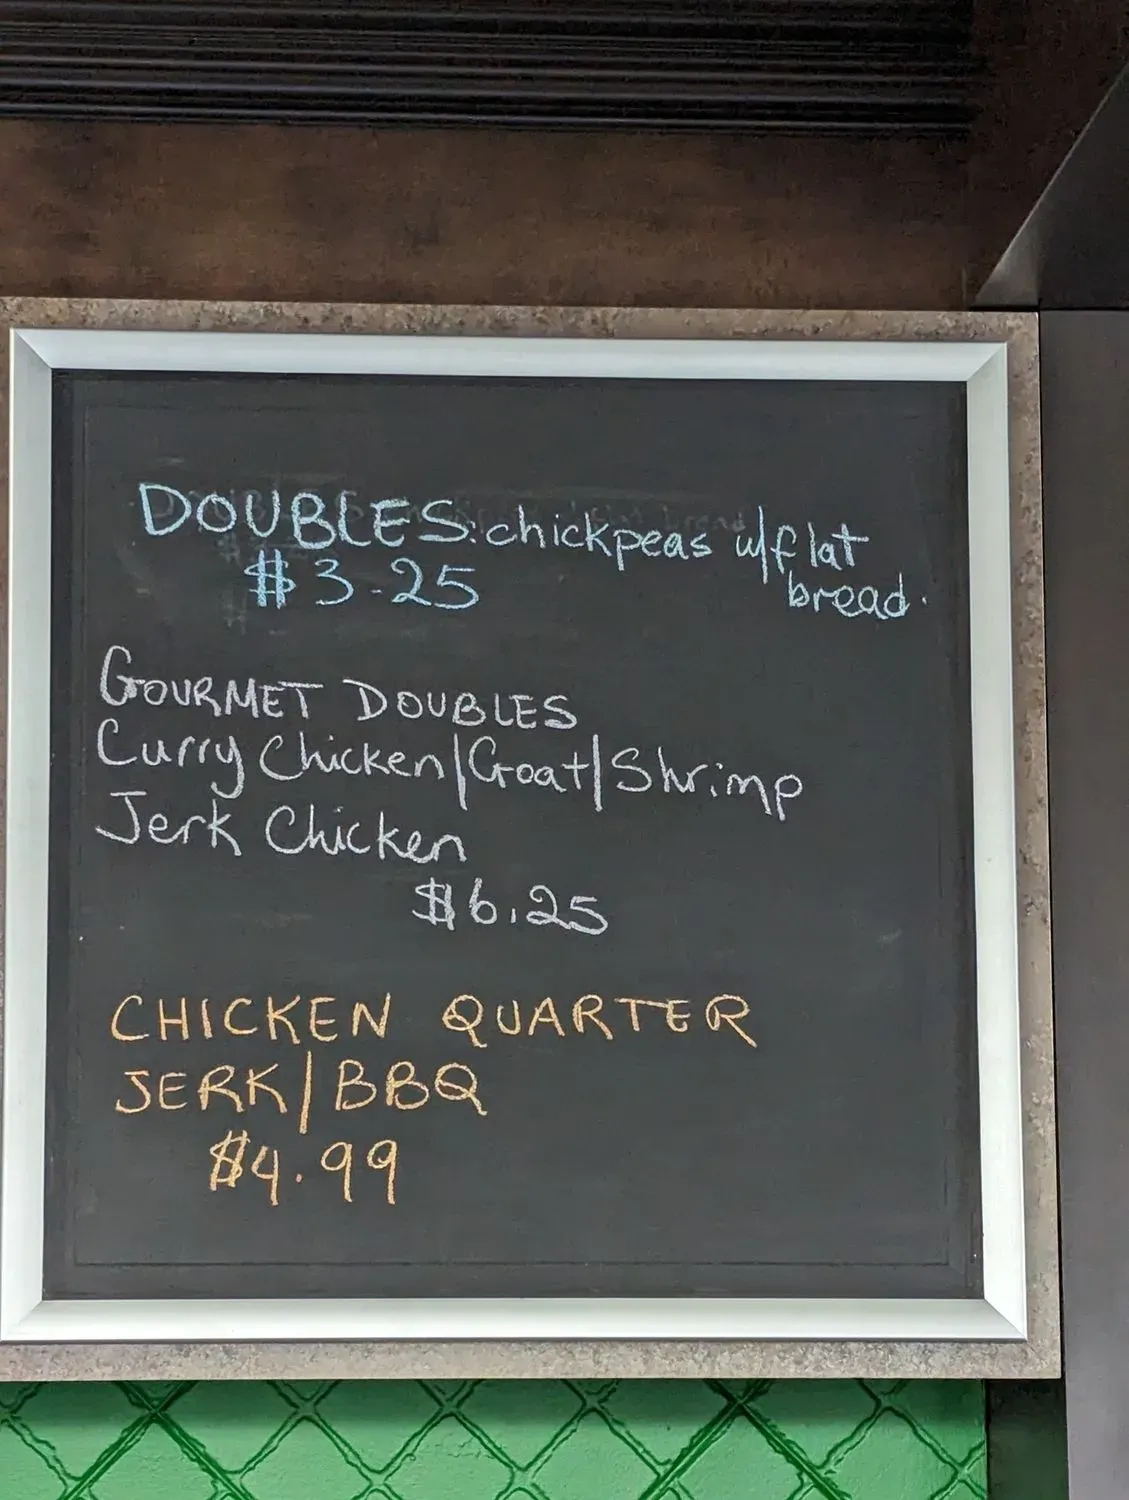 DOUBLES: chickpeas w/flat
bread.
$3.25
GOURMET DOUBLES
Curry Chicken/Goat/Shrimp
Jerk Chicken
$6.25
CHICKEN QUARTER
JERK/BBQ
$4.99